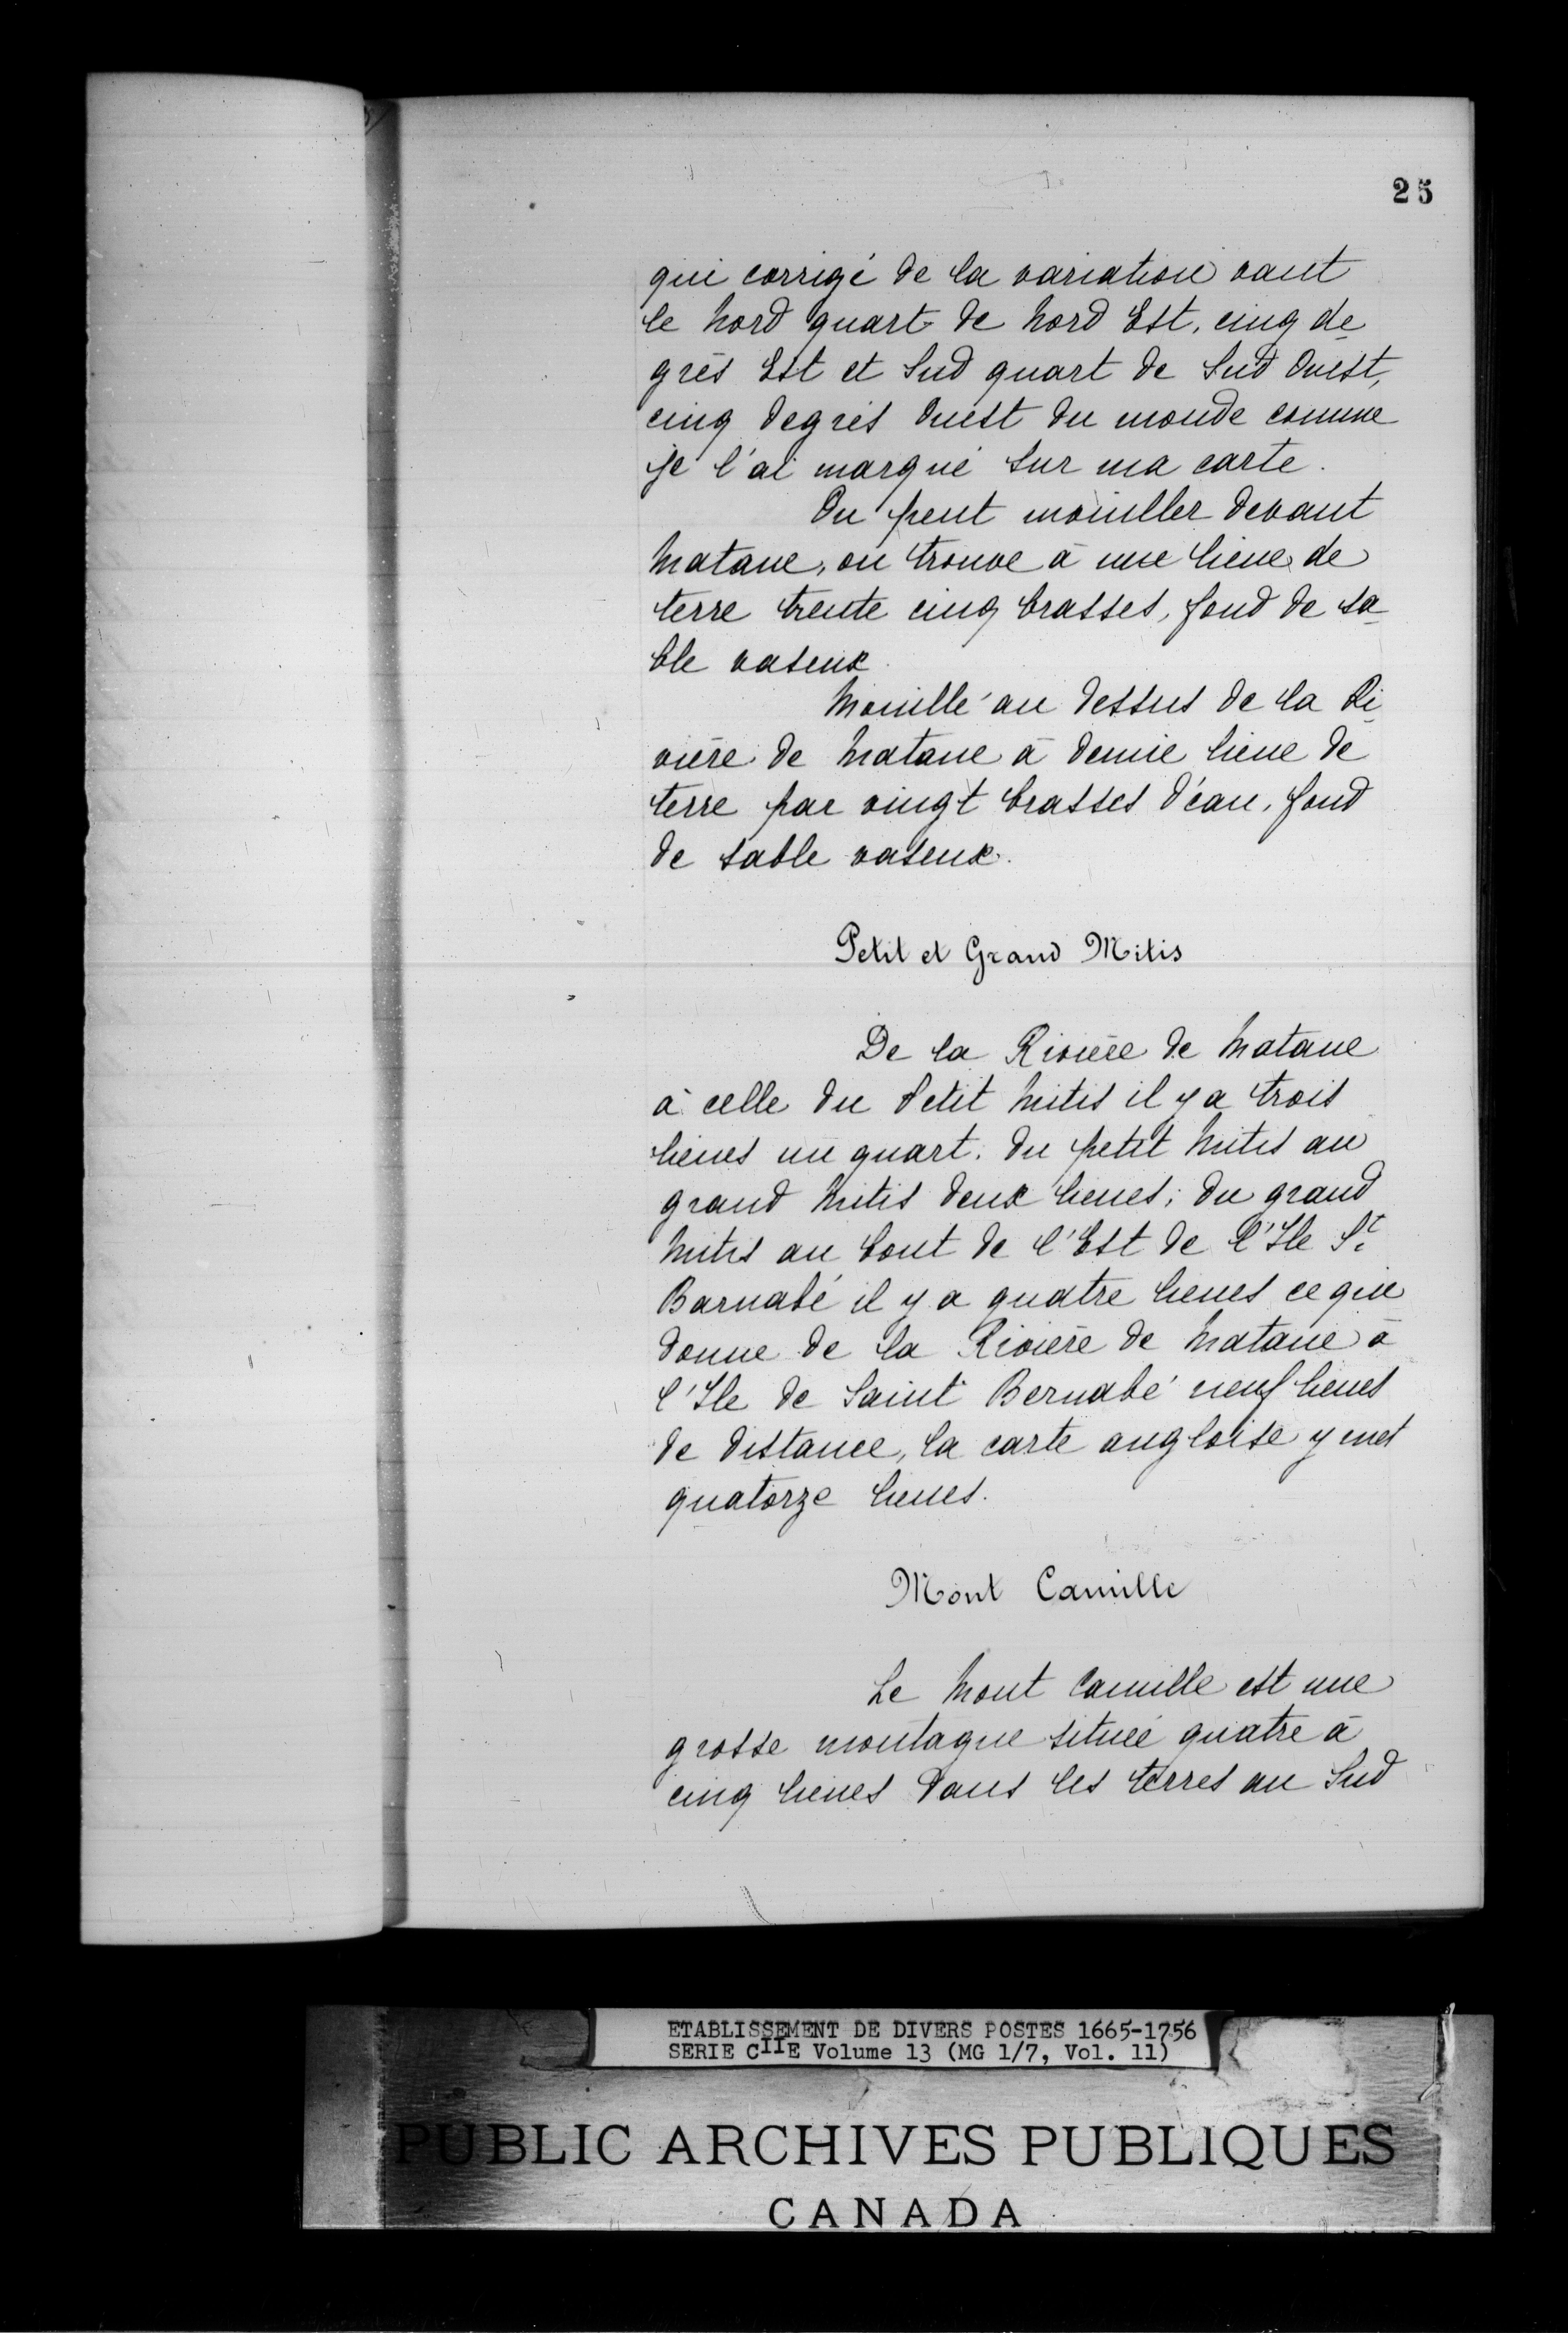 25
qui corrigé de la variation vaut
le Nord quart de Nord Est, cinq de
grés Est et Sud quart de Sud Ouest,
cinq degrés Ouest du monde comme
je l'ai marqué sur ma carte.
On peut mouiller devant
Matane, on trouve à une lieue de
terre trente cinq brasses, fond de sa
ble vaseux.
Mouillé au dessus de la Ri
vière de Matane à demie lieue de
terre par vingt brasses d'eau, fond
de sable vaseux.
Petit et Grand Mitis
De la Rivière de Matane
à celle du Petit Mitis il y a trois
lieues un quart. du petit Mitis au
grand Mitis deux lieues; du grand
Mitis au bout de l'Est de l'Ile St
Barnabé il y a quatre lieues ce qui
donne de la Rivière de Matane à
l'Ile de Saint Bernabé neuf lieues
de distance, la carte angloise y met
quatorze lieues.
Mont Camille
Le Mont Camille est une
grosse montagne située quatre à
cinq lieues dans les terres au Sud
ETABLISSEMENT DE DIVERS POSTES 1665-1756
SERIE CIIE Volume 13 (MG 1/7, Vol. 11)
PUBLIC ARCHIVES PUBLIQUES
CANADA